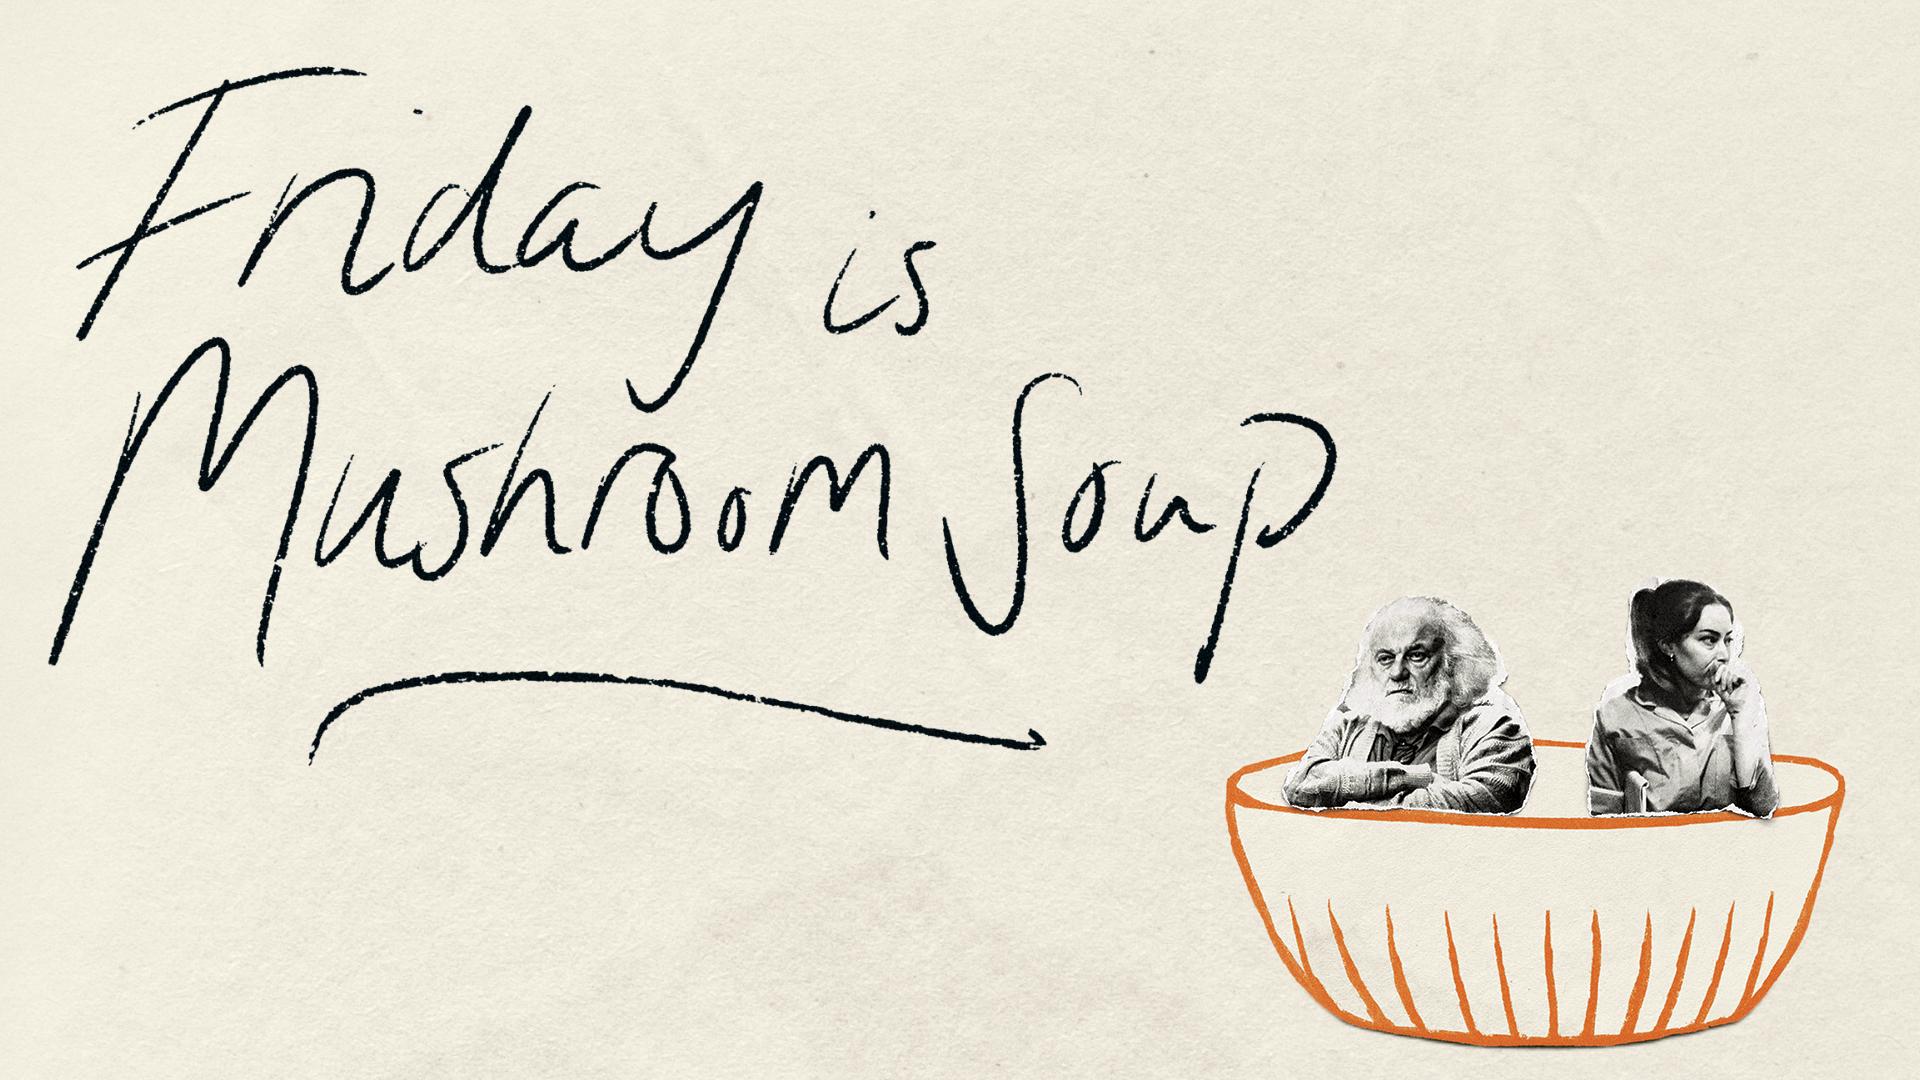 Friday is
Mushroom Soup